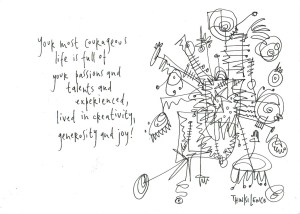 your most courageous
life is full of
your passions and
talents and
experienced,
lived in creativity,
generosity and joy!